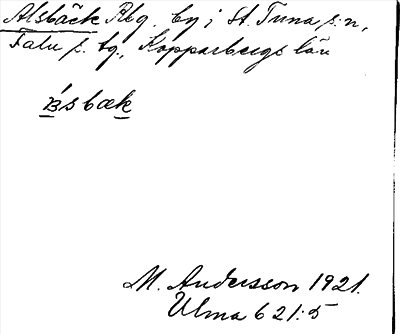 Alsbäck Rbg. by i St. Tuna s:n,
Falu s. tg., Kopparbergs län
sbæk
M. Andersson 1921.
Ulma 621:5